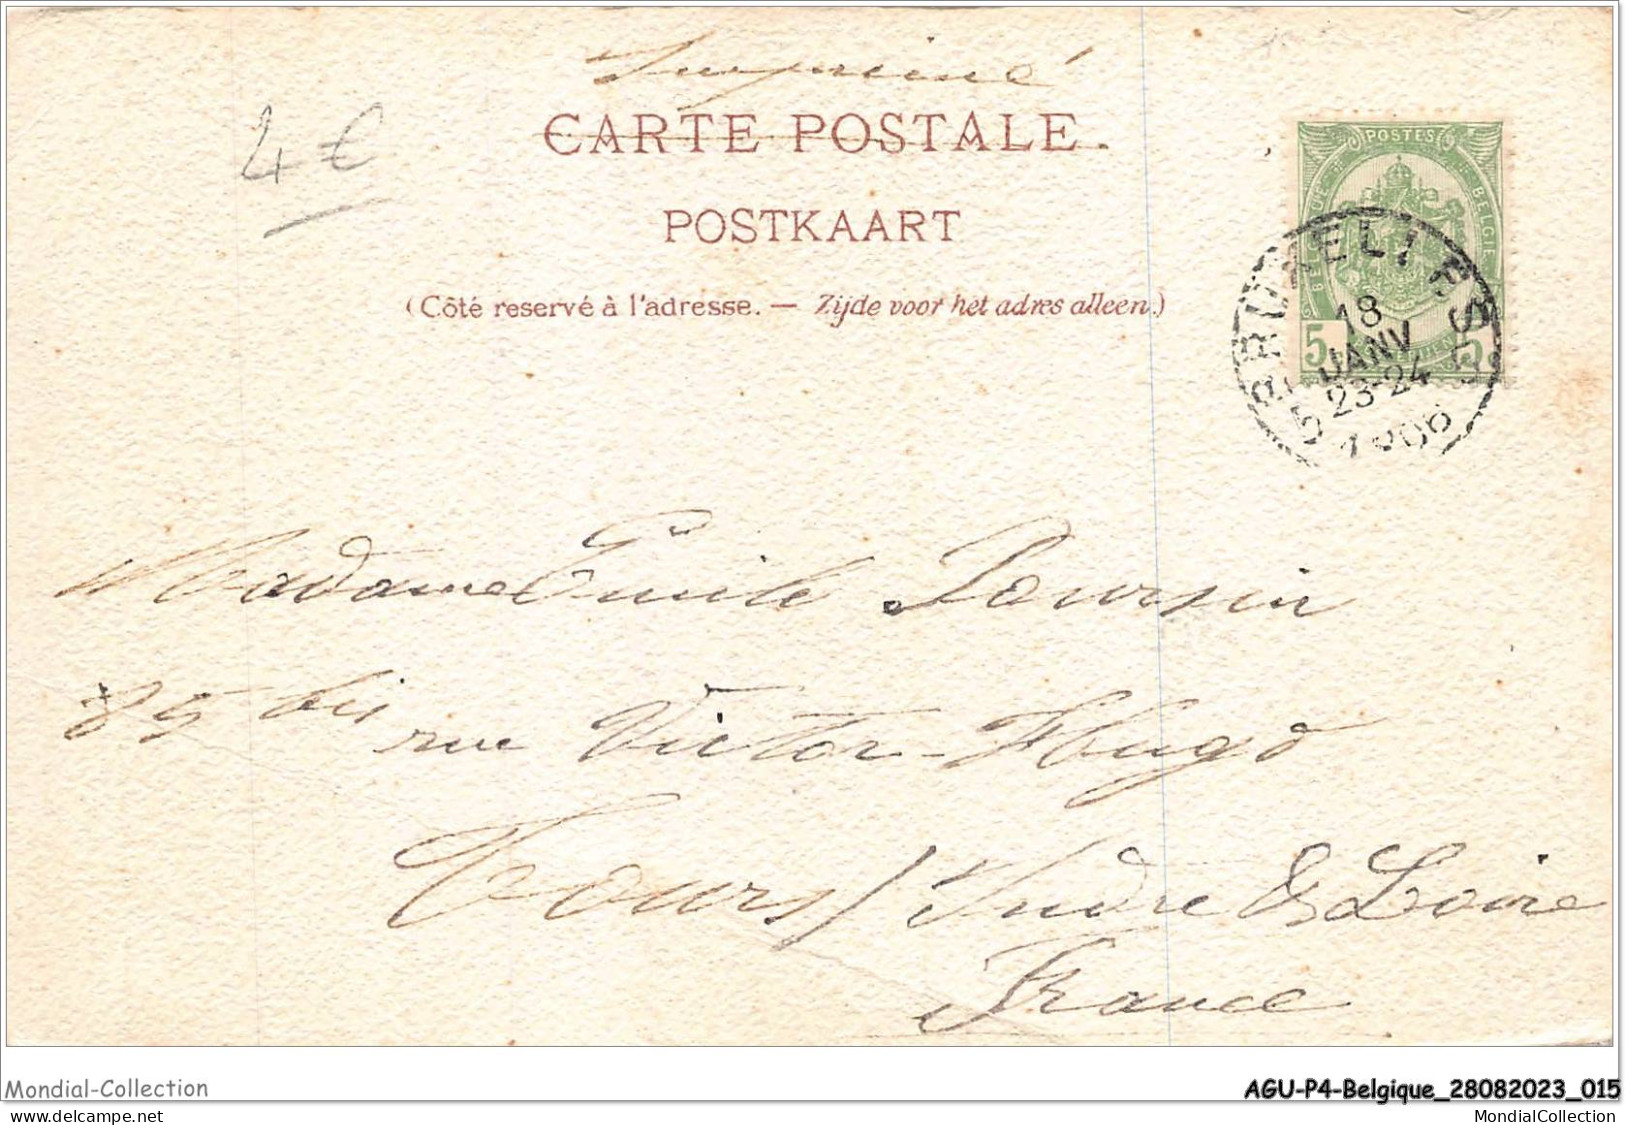 Imprimé
CARTE POSTALE.
4 €
POSTKAART
(Côté reservé à l'adresse. — Zijde voor het adres alleen.)
POSTES
BELGIQUE
BELGIE
5 5
BRUXELLES
18
JANV
23-24
5
Madame Emile Poursin
85 bis rue Victor-Hugo
Tours / Indre & Loire
France
Mondial-Collection
AGU-P4-Belgique_28082023_015
delcampe.net
MondialCollection